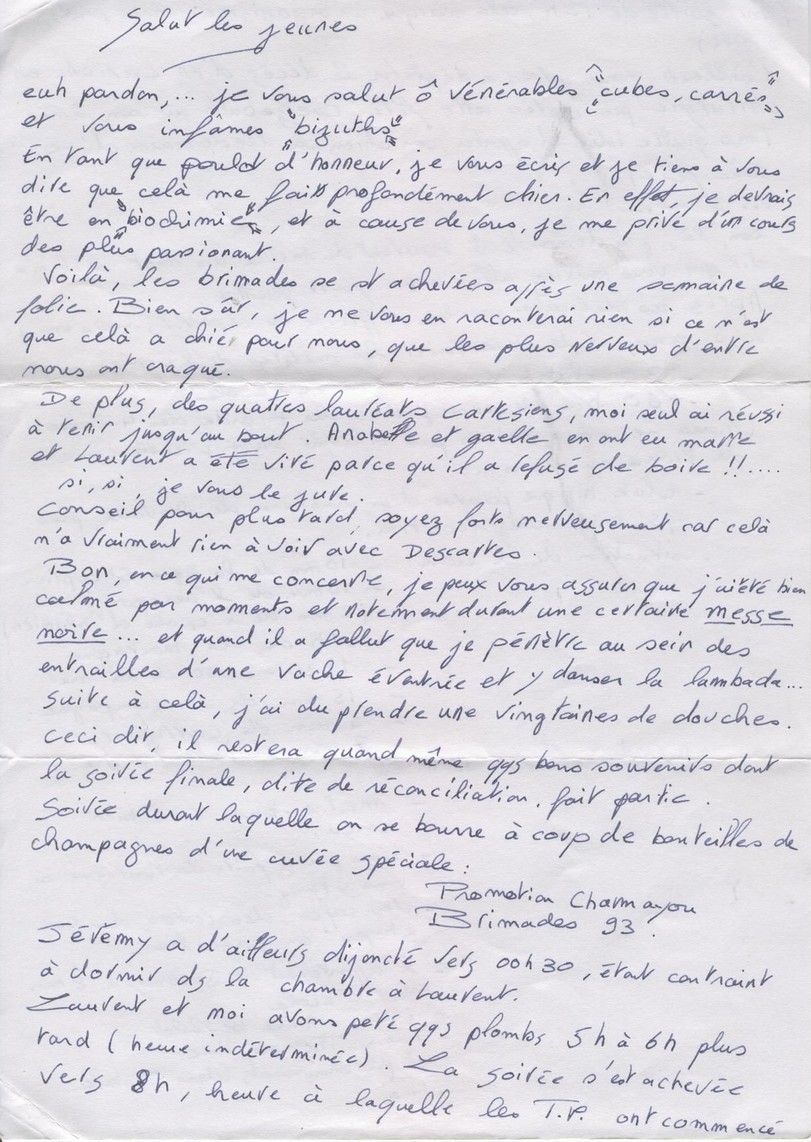 Salut les jeunes
euh pardon,... je vous salut ô vénérables "cubes, carrés"
et vous infâmes "bizuths"
En tant que poulot d'honneur, je vous écris et je tiens à vous
dire que celà me fait profondément chier. En effet, je devrais
être en "biochimie", et à cause de vous, je me prive d'un cours
des plus passionant.
Voilà, les brimades se st achevées après une semaine de
folie. Bien sûr, je ne vous en raconterai rien si ce n'est
que celà a chié pour nous, que les plus nerveux d'entre
nous ont craqué.
De plus, des quatres lauréats Cartesiens, moi seul ai réussi
à tenir jusqu'au bout. Anabelle et gaelle en ont eu marre
et Laurent a été viré parce qu'il a refusé de boire !!....
si, si, je vous le jure.
Conseil pour plus tard, soyez forts nerveusement car celà
n'a vraiment rien à voir avec Descartes.
Bon, en ce qui me concerne, je peux vous assurer que j'ai été bien
calmé par moments et notemment durant une certaine messe
noire... et quand il a fallut que je pénètre au sein des
entrailles d'une vache éventrée et y danser la lambada...
suite à celà, j'ai du prendre une vingtaines de douches.
Ceci dit, il restera quand même qqs bons souvenirs dont
la soirée finale, dite de réconciliation, fait partie.
Soirée durant laquelle on se bourre à coup de bouteilles de
champagnes d'une cuvée spéciale :
Promotion Charmayou
Brimades 93.
Jérémy a d'ailleurs dijoncté vers 00h30, étant contraint
à dormir ds la chambre à Laurent.
Laurent et moi avons peté qqs plombs 5h à 6h plus
tard (heure indéterminée). La soirée s'est achevée
vers 8h, heure à laquelle les T.P. ont commencé